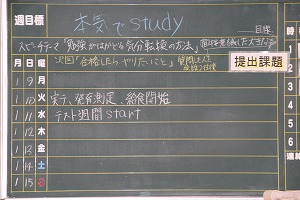 週目標 本気でstudy
目標
スピーチテーマ「勉強がはかどる気分転換の方法」
次回「合格したらやりたいこと」
提出課題
月 日 曜
1 9 月
1 10 火 実テ、発育測定、給食開始
1 11 水 テスト週間start
1 12 木
1 13 金
1 14 土
1 15 日
時
1
2
3
4
5
6
連